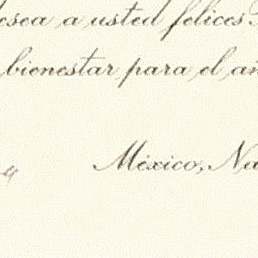 desea a usted felices
bienestar para el añ
México, Na